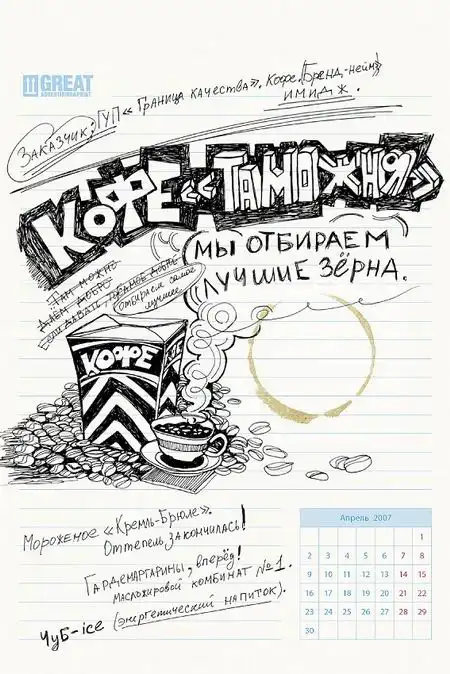 GREAT
ADVERTISING&PRINT
Заказчик: ГУП «Граница качества». Кофе. (Бренд-нейм)
ИМИДЖ.
КОФЕ «ТАМОЖНЯ»
МЫ ОТБИРАЕМ
ЛУЧШИЕ ЗЁРНА.
Там можно
Даём добро
Если давать, то самое доброе
отбираем самое
лучшее
КОФЕ
Мороженое «Кремль-Брюле».
Оттепель закончилась!
Гардемаргарины, вперёд!
Масложировой комбинат №1.
Чуб-ice (энергетический напиток).
Апрель 2007
1
2 3 4 5 6 7 8
9 10 11 12 13 14 15
16 17 18 19 20 21 22
23 24 25 26 27 28 29
30